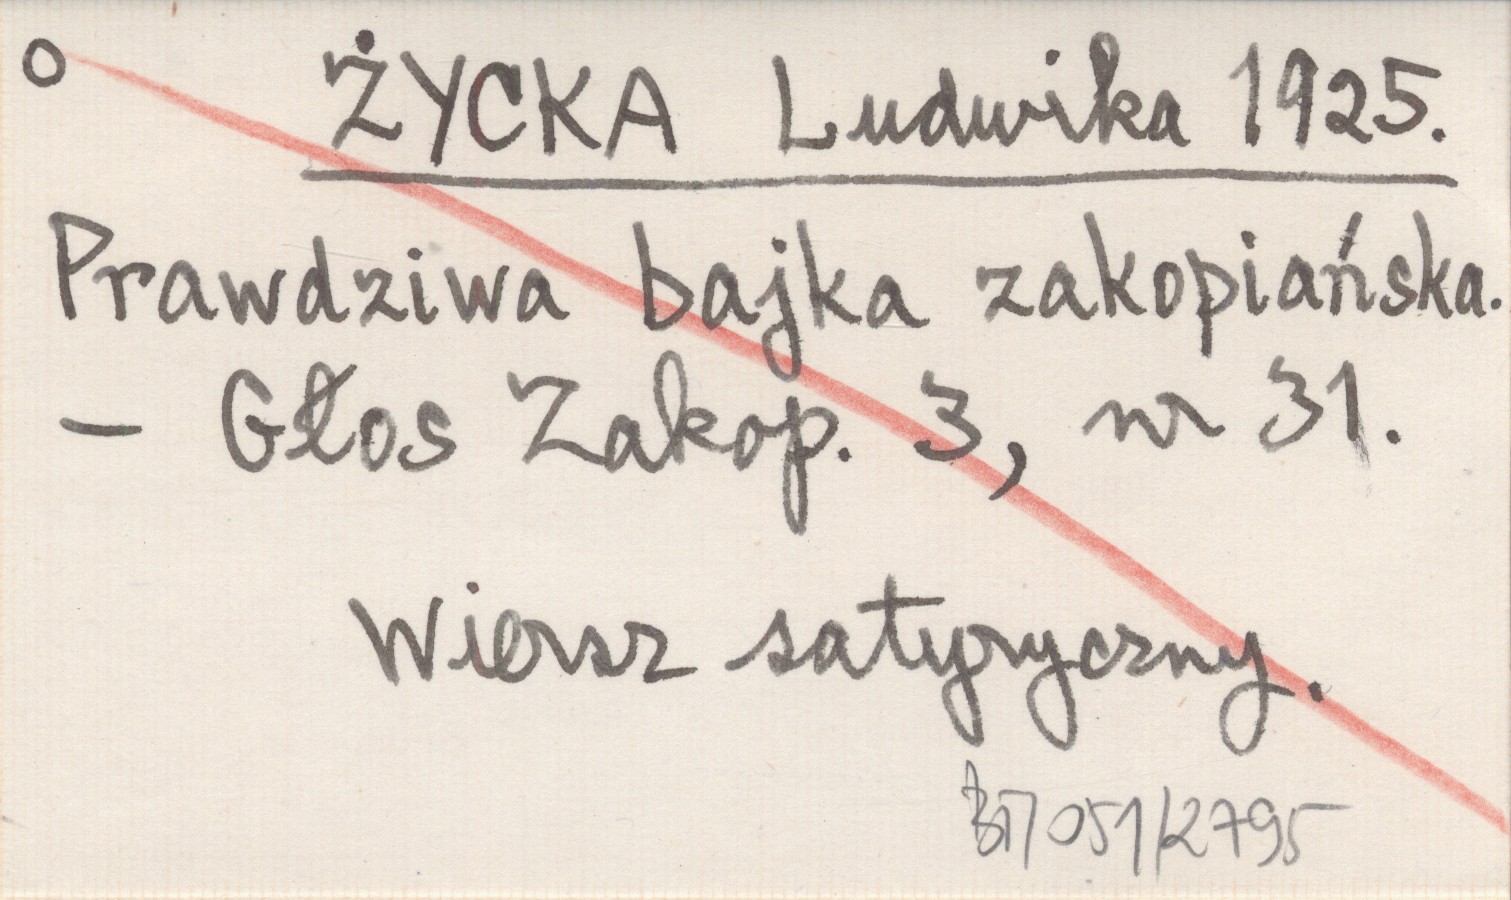 o ŻYCKA Ludwika 1925.
Prawdziwa bajka zakopiańska.
– Głos Zakop. 3, nr 31.
Wiersz satyryczny.
051/2795